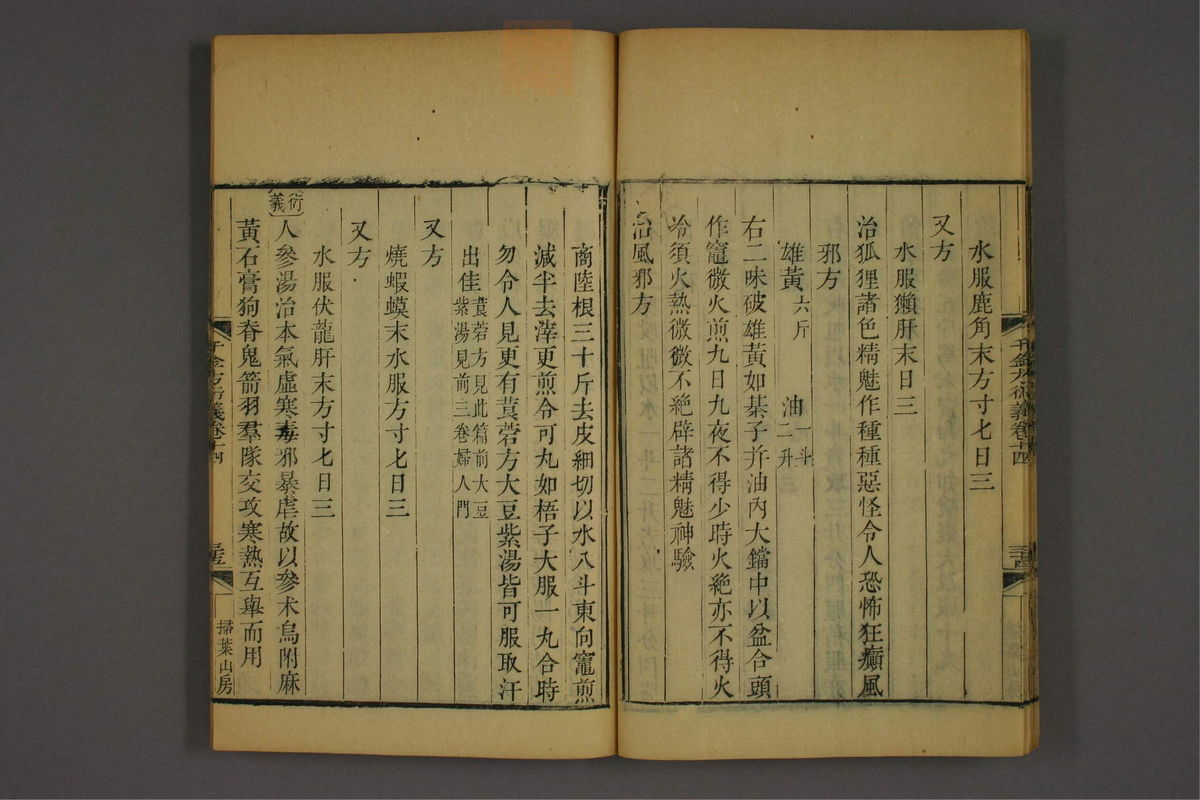 水服鹿角末方寸七日三
又方
水服獺肝末日三
治狐狸諸色精魅作種種惡怪令人恐怖狂癲風
邪方
雄黃六斤 油一斗二升
右二味破雄黃如棊子幷油內大鐺中以盆合頭
作竈微火煎九日九夜不得少時火絶亦不得火
冷須火熱微微不絶辟諸精魅神驗
治風邪方
商陸根三十斤去皮細切以水八斗東向竈煎
減半去滓更煎令可丸如梧子大服一丸合時
勿令人見更有莨菪方大豆紫湯皆可服取汗
出佳莨菪方見此篇前大豆紫湯見前三卷婦人門
又方
燒蝦蟆末水服方寸七日三
又方
水服伏龍肝末方寸七日三
衍義
人參湯治本氣虛寒毒邪暴虐故以參朮烏附麻
黃石膏狗脊鬼箭羽羣隊交攻寒熱互舉而用
千金方衍義卷十四
掃葉山房